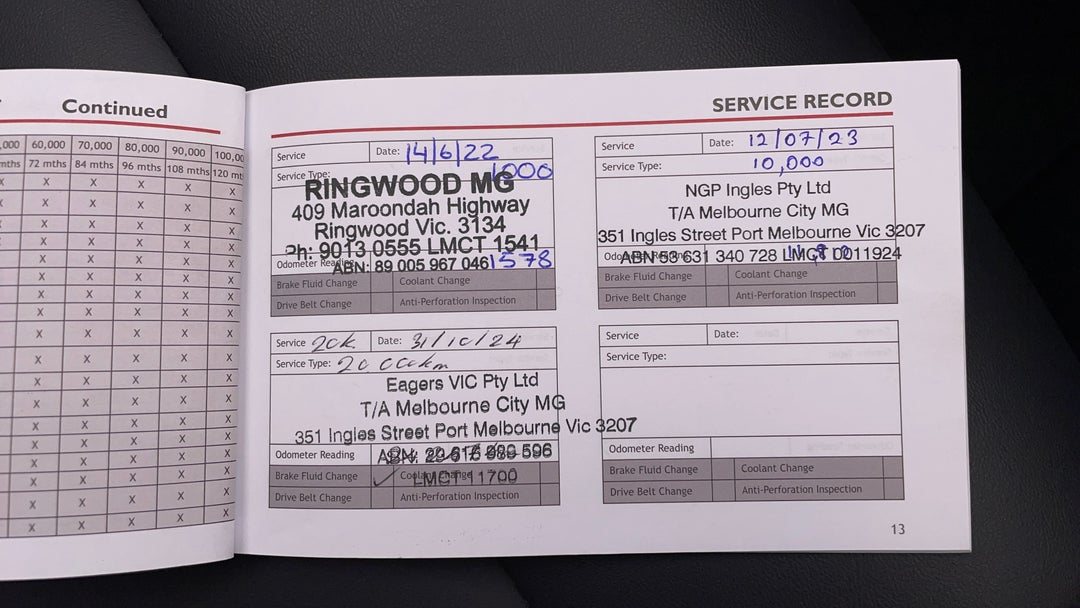 Continued
,000 60,000 70,000 80,000 90,000 100,00
mths 72 mths 84 mths 96 mths 108 mths 120 mt
X X X X X X
X X X X X X
X X X X X X
X X X X X X
X X X X X X
X X X X X X
X X X X X X
X X X X X X
X X X X X
X X X X X
X X X X X
X X X X X
X X X X X
X X X X X
X X X X X
X X X X X
X X X X X
SERVICE RECORD
Service Date: 14/6/22
Service Type: 1000
RINGWOOD MG
409 Maroondah Highway
Ringwood Vic. 3134
Ph: 9013 0555 LMCT 1541
Odometer Reading 1578
ABN: 89 005 967 046
Brake Fluid Change Coolant Change
Drive Belt Change Anti-Perforation Inspection
Service Date: 12/07/23
Service Type: 10,000
NGP Ingles Pty Ltd
T/A Melbourne City MG
351 Ingles Street Port Melbourne Vic 3207
ABN 53 631 340 728 LMCT 0011924
Brake Fluid Change Coolant Change
Drive Belt Change Anti-Perforation Inspection
Service 20k Date: 31/10/24
Service Type: 20 000km
Eagers VIC Pty Ltd
T/A Melbourne City MG
351 Ingles Street Port Melbourne Vic 3207
Odometer Reading
ABN:
Brake Fluid Change ✓ Coolant Change
LMCT 11700
Drive Belt Change Anti-Perforation Inspection
Service Date:
Service Type:
Odometer Reading
Brake Fluid Change Coolant Change
Drive Belt Change Anti-Perforation Inspection
13